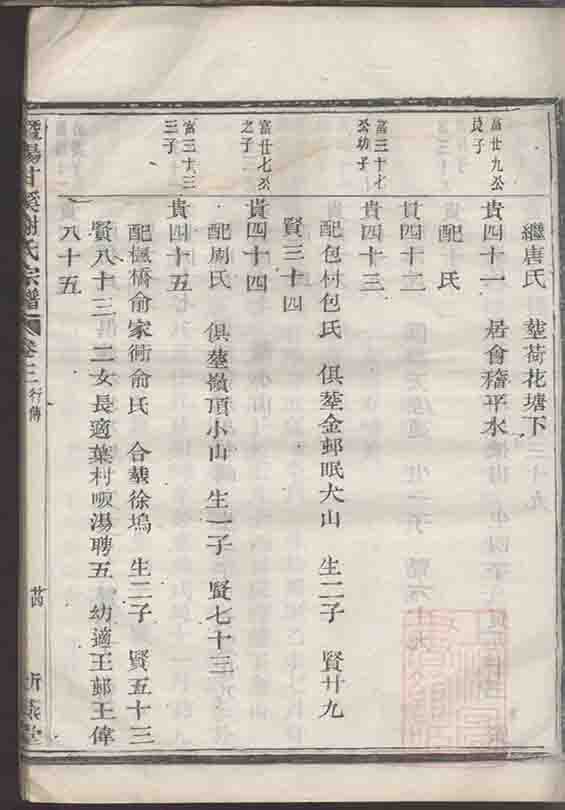 繼唐氏 塟荷花塘下
富廿九公
長子
貴四十一 居會稽平水
配 氏
貴四十二
富三十七
公幼子
貴四十三
配包村包氏 俱塟金邨眠犬山 生二子 賢廿九
賢三十四
富廿七公
之子
貴四十四
配周氏 俱塟嶺頂小山 生一子 賢七十三
富三十三
三子
貴四十五
配 橋俞家衖俞氏 合塟徐塢 生二子 賢五十三
賢八十三 二女長適葉村 湯聘五 幼適王邨王偉
八十五
暨陽甘溪謝氏宗譜 卷三 行傳